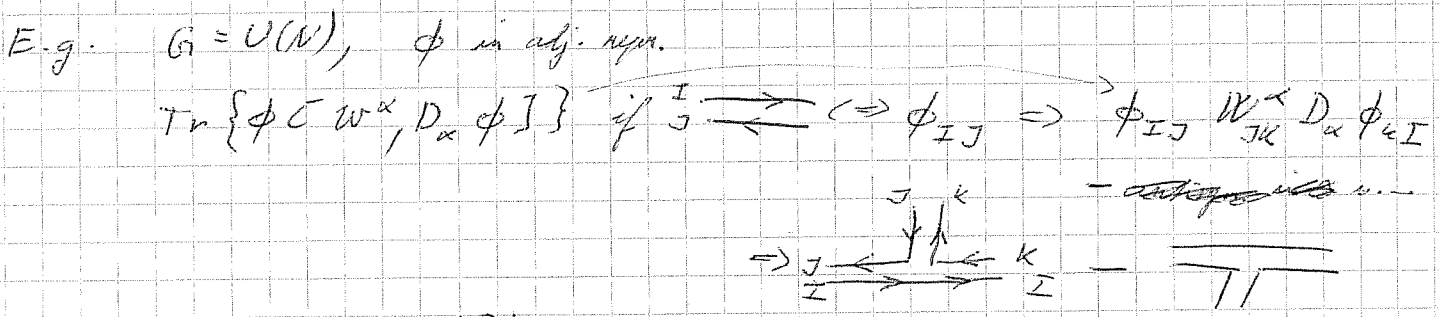 E.g. G = U(N), ϕ in adj. repr.
Tr {ϕ [ W^α, D_α ϕ ]} if I J ⇔ ϕ_{IJ} ⇒ ϕ_{IJ} W^α_{JK} D_α ϕ_{KI}
J K –
⇒ J K –
I I